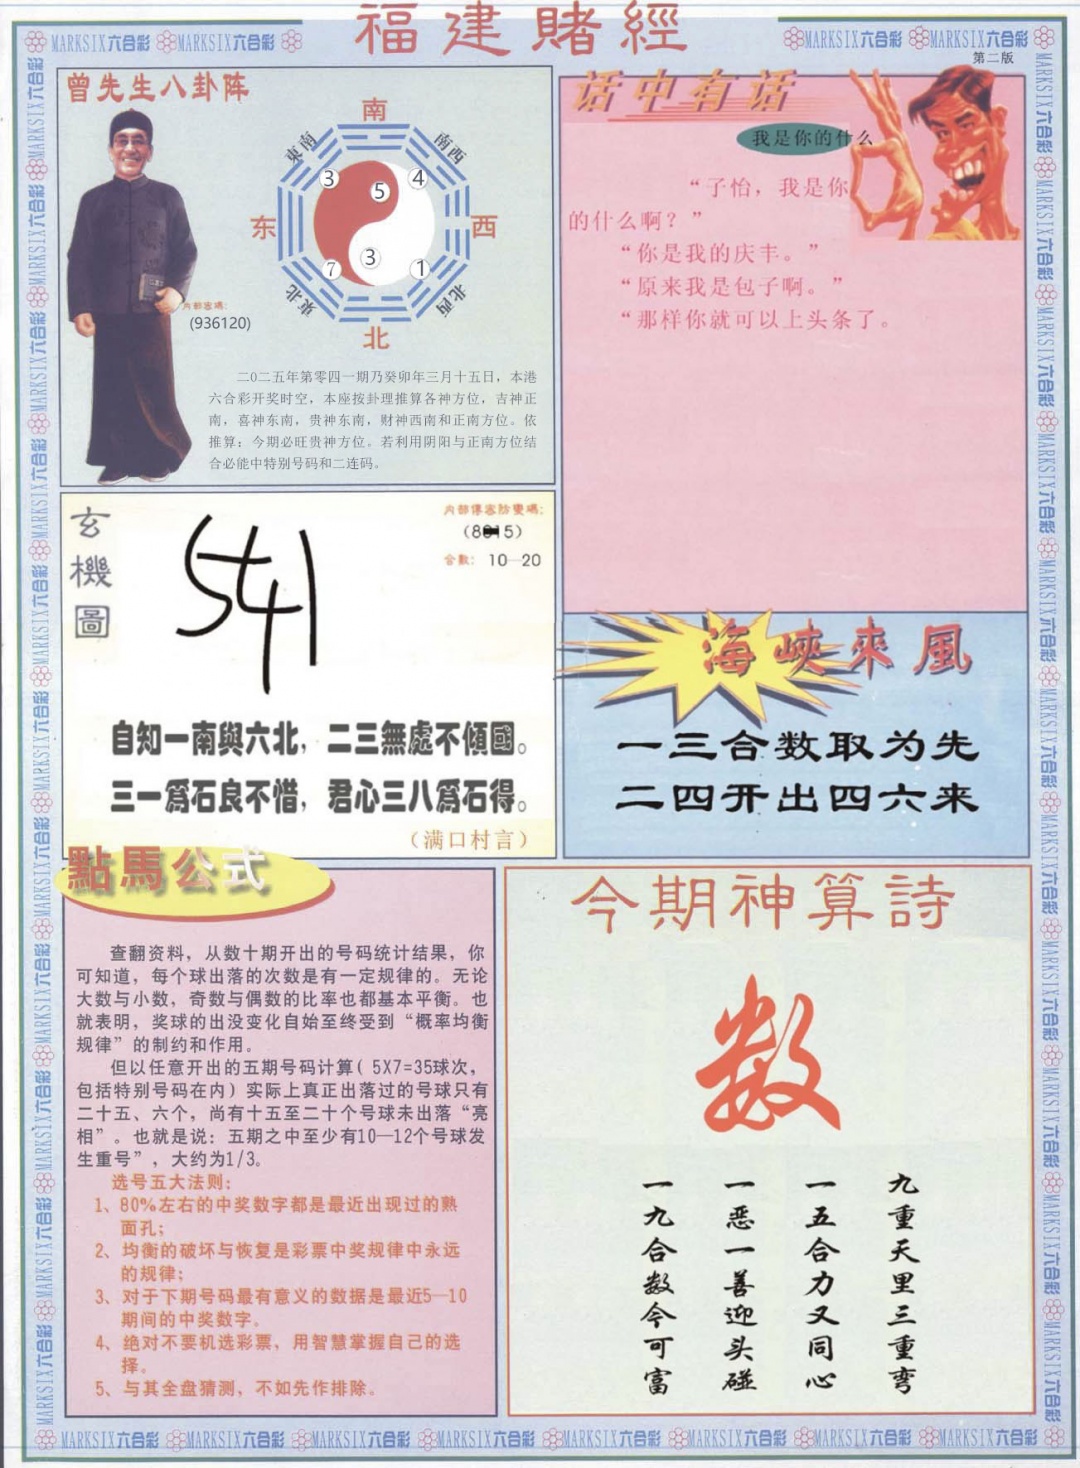 福建賭經
MARKSIX六合彩 MARKSIX六合彩 MARKSIX六合彩 MARKSIX六合彩
第二版
曾先生八卦阵
南
東南 南西
3 5 4
东 西
7 3 1
東北 北西
北
内部密碼:
(936120)
二0二五年第零四一期乃癸卯年三月十五日，本港
六合彩开奖时空，本座按卦理推算各神方位，吉神正
南，喜神东南，贵神东南，财神西南和正南方位。依
推算：今期必旺贵神方位。若利用阴阳与正南方位结
合必能中特别号码和二连码。
话中有话
我是你的什么
“子怡，我是你
的什么啊？”
“你是我的庆丰。”
“原来我是包子啊。”
“那样你就可以上头条了。
玄機圖
541
(8 15)
合數： 10—20
自知一南與六北，二三無處不傾國。
三一爲石良不惜，君心三八爲石得。
（满口村言）
海峽來風
一三合数取为先
二四开出四六来
點馬公式
查翻资料，从数十期开出的号码统计结果，你
可知道，每个球出落的次数是有一定规律的。无论
大数与小数，奇数与偶数的比率也都基本平衡。也
就表明，奖球的出没变化自始至终受到“概率均衡
规律”的制约和作用。
但以任意开出的五期号码计算（5X7=35球次，
包括特别号码在内）实际上真正出落过的号球只有
二十五、六个，尚有十五至二十个号球未出落“亮
相”。也就是说：五期之中至少有10—12个号球发
生重号”，大约为1/3。
选号五大法则：
1、80%左右的中奖数字都是最近出现过的熟
面孔；
2、均衡的破坏与恢复是彩票中奖规律中永远
的规律；
3、对于下期号码最有意义的数据是最近5—10
期间的中奖数字。
4、绝对不要机选彩票，用智慧掌握自己的选
择。
5、与其全盘猜测，不如先作排除。
今期神算詩
数
九重天里三重弯
一五合力又同心
一恶一善迎头碰
一九合数今可富
MARKSIX六合彩 MARKSIX六合彩 MARKSIX六合彩 MARKSIX六合彩 MARKSIX六合彩 MARKSIX六合彩 MARKSIX六合彩 MARKSIX六合彩